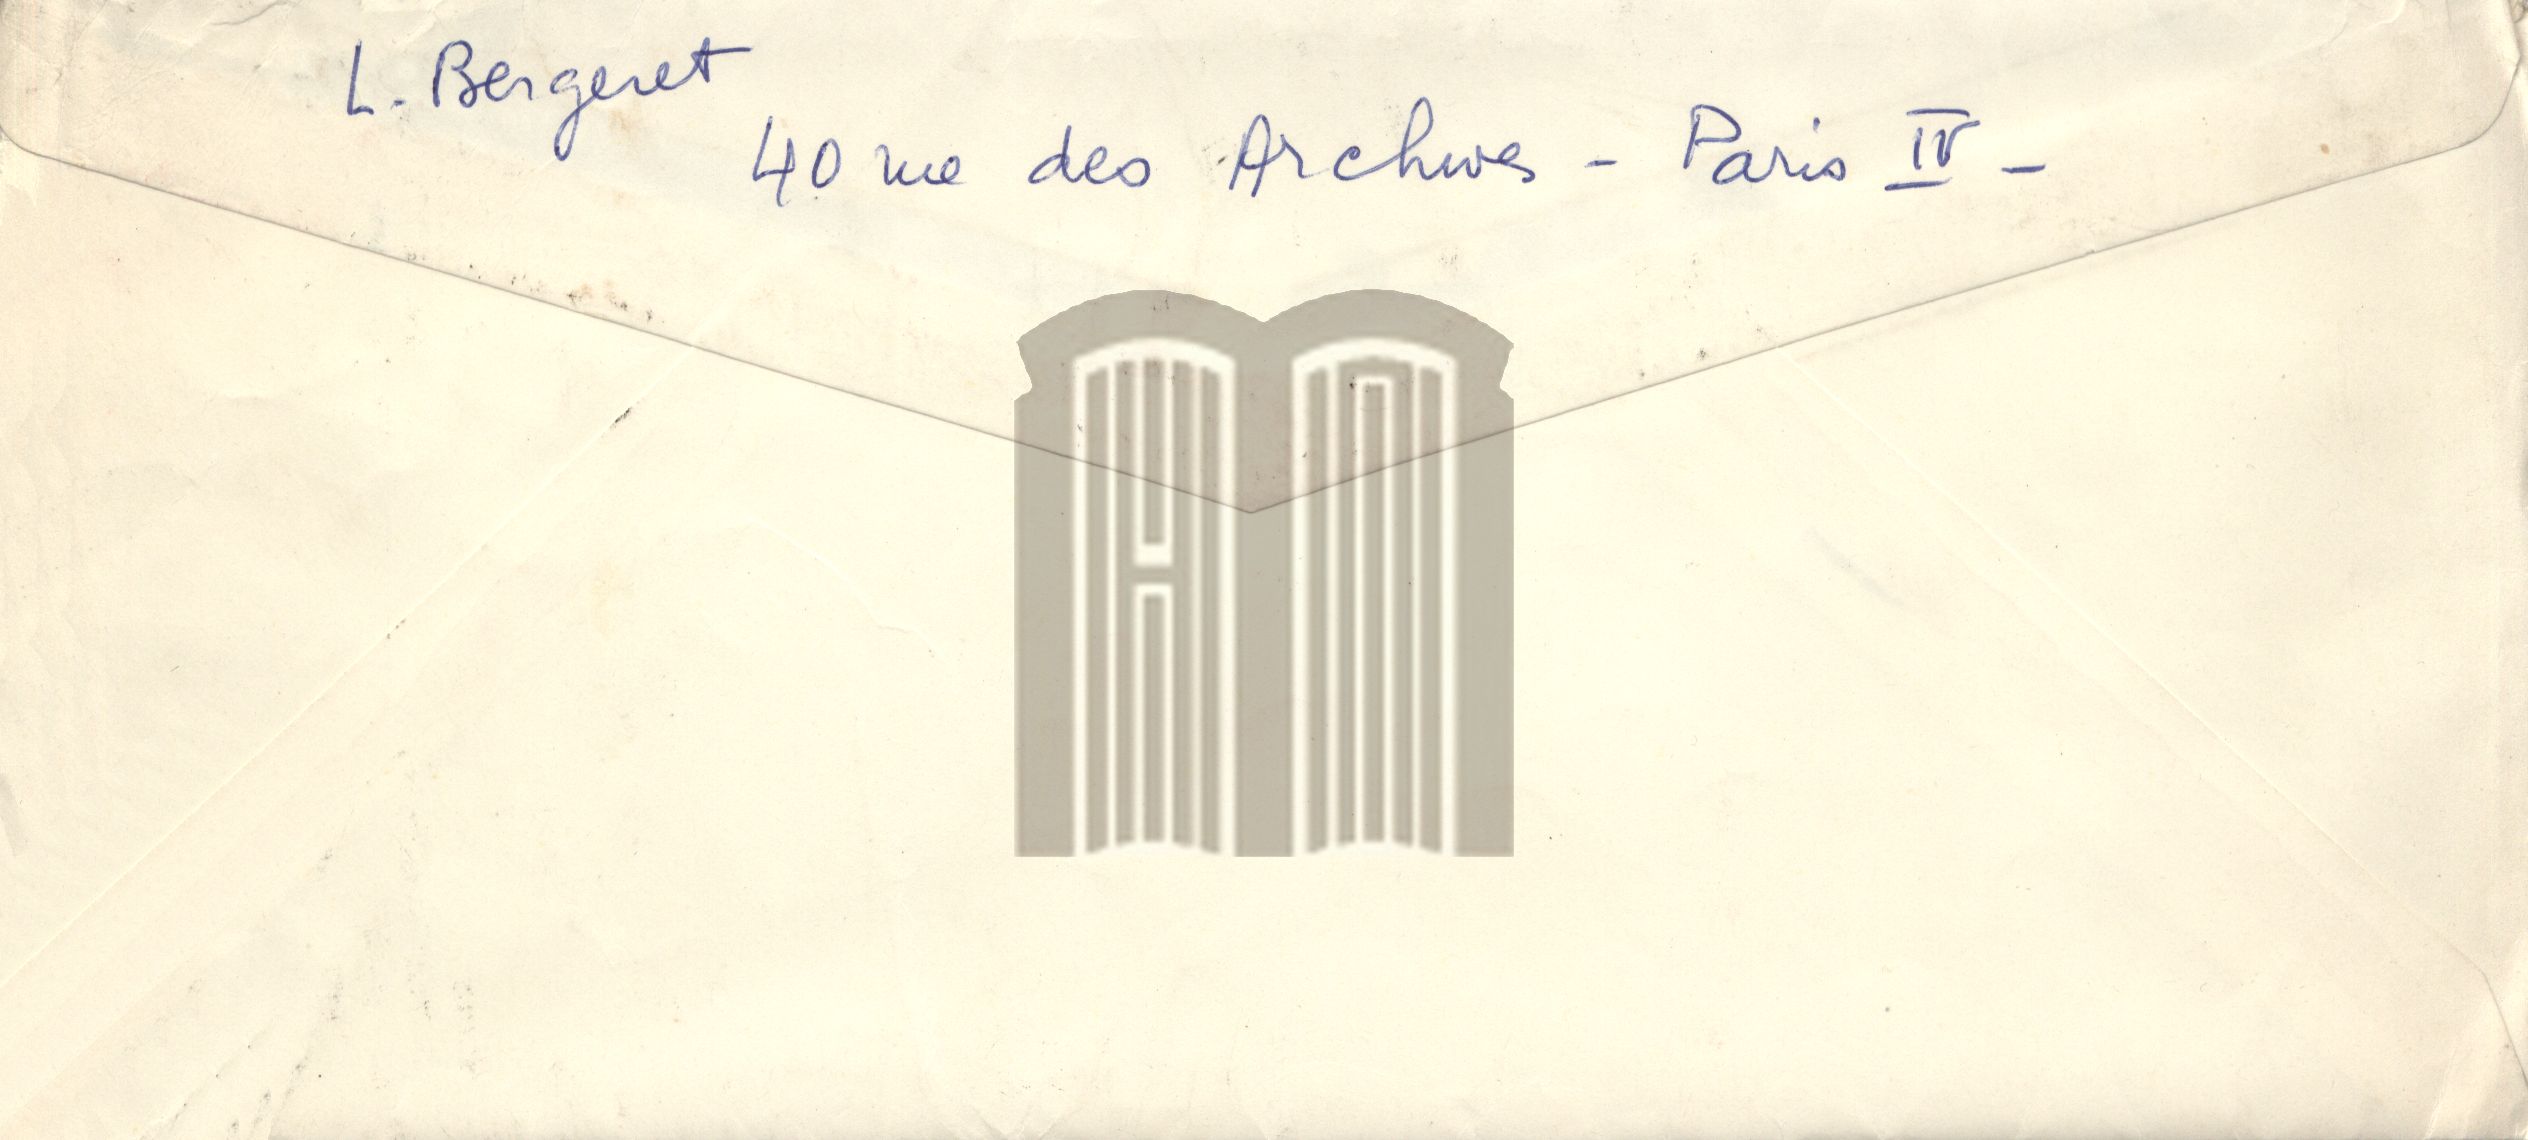 L. Bergeret
40 rue des Archives - Paris IV -